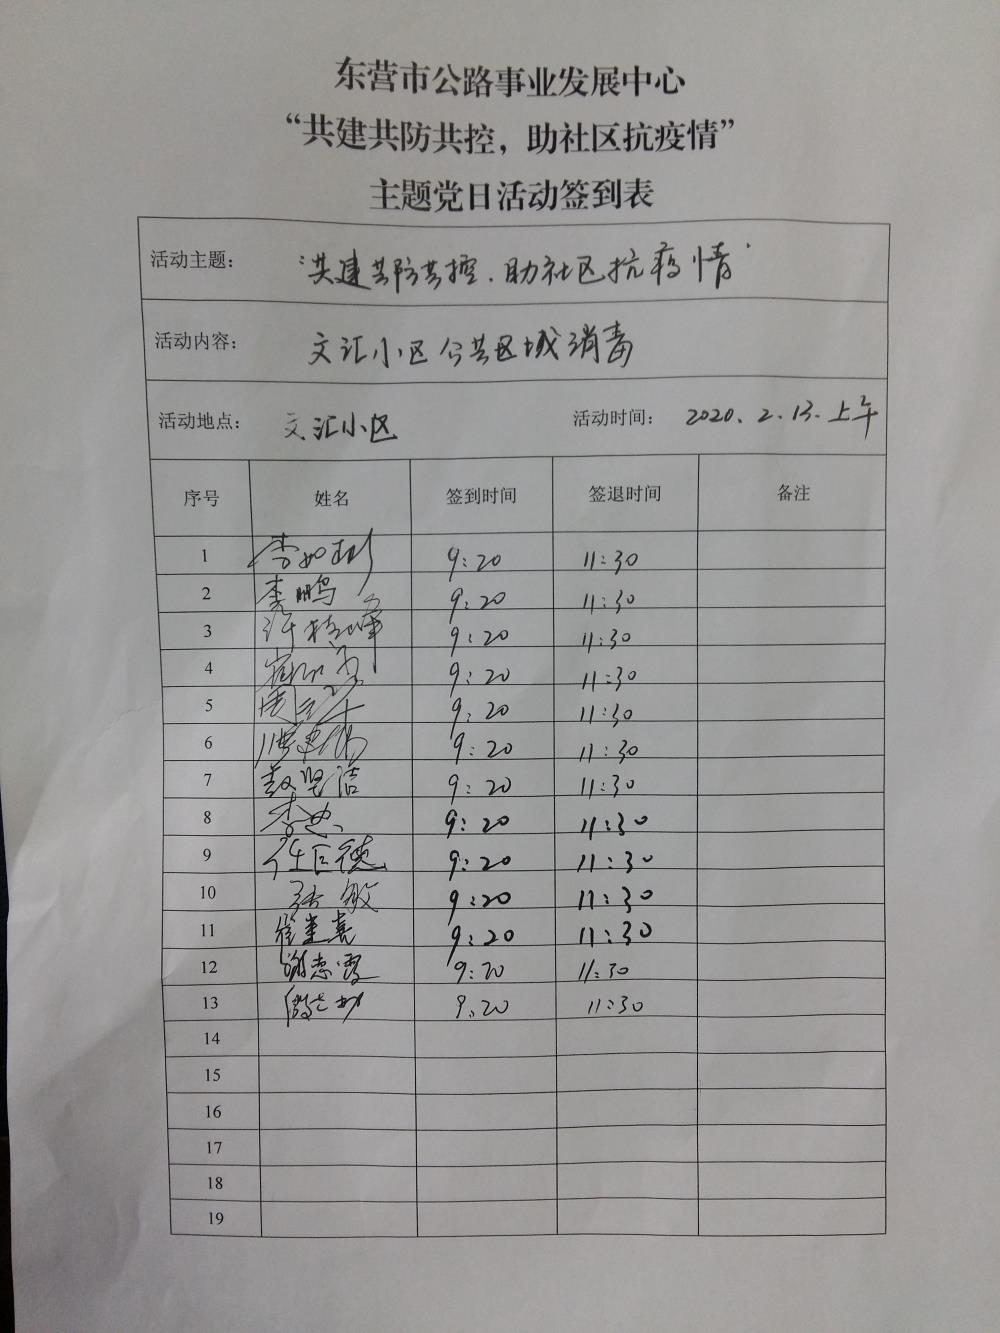 东营市公路事业发展中心
“共建共防共控，助社区抗疫情”
主题党日活动签到表
活动主题： “共建共防共控、助社区抗疫情”
活动内容： 文汇小区公共区域消毒
活动地点： 文汇小区 活动时间： 2020.2.13.上午
序号 姓名 签到时间 签退时间 备注
1 李如彬 9:20 11:30
2 李鹏 9:20 11:30
3 许 峰 9:20 11:30
4 9:20 11:30
5 周 9:20 11:30
6 9:20 11:30
7 赵坚洁 9:20 11:30
8 李忠 9:20 11:30
9 任巨德 9:20 11:30
10 张敏 9:20 11:30
11 崔建喜 9:20 11:30
12 谢志霞 9:20 11:30
13 9:20 11:30
14
15
16
17
18
19